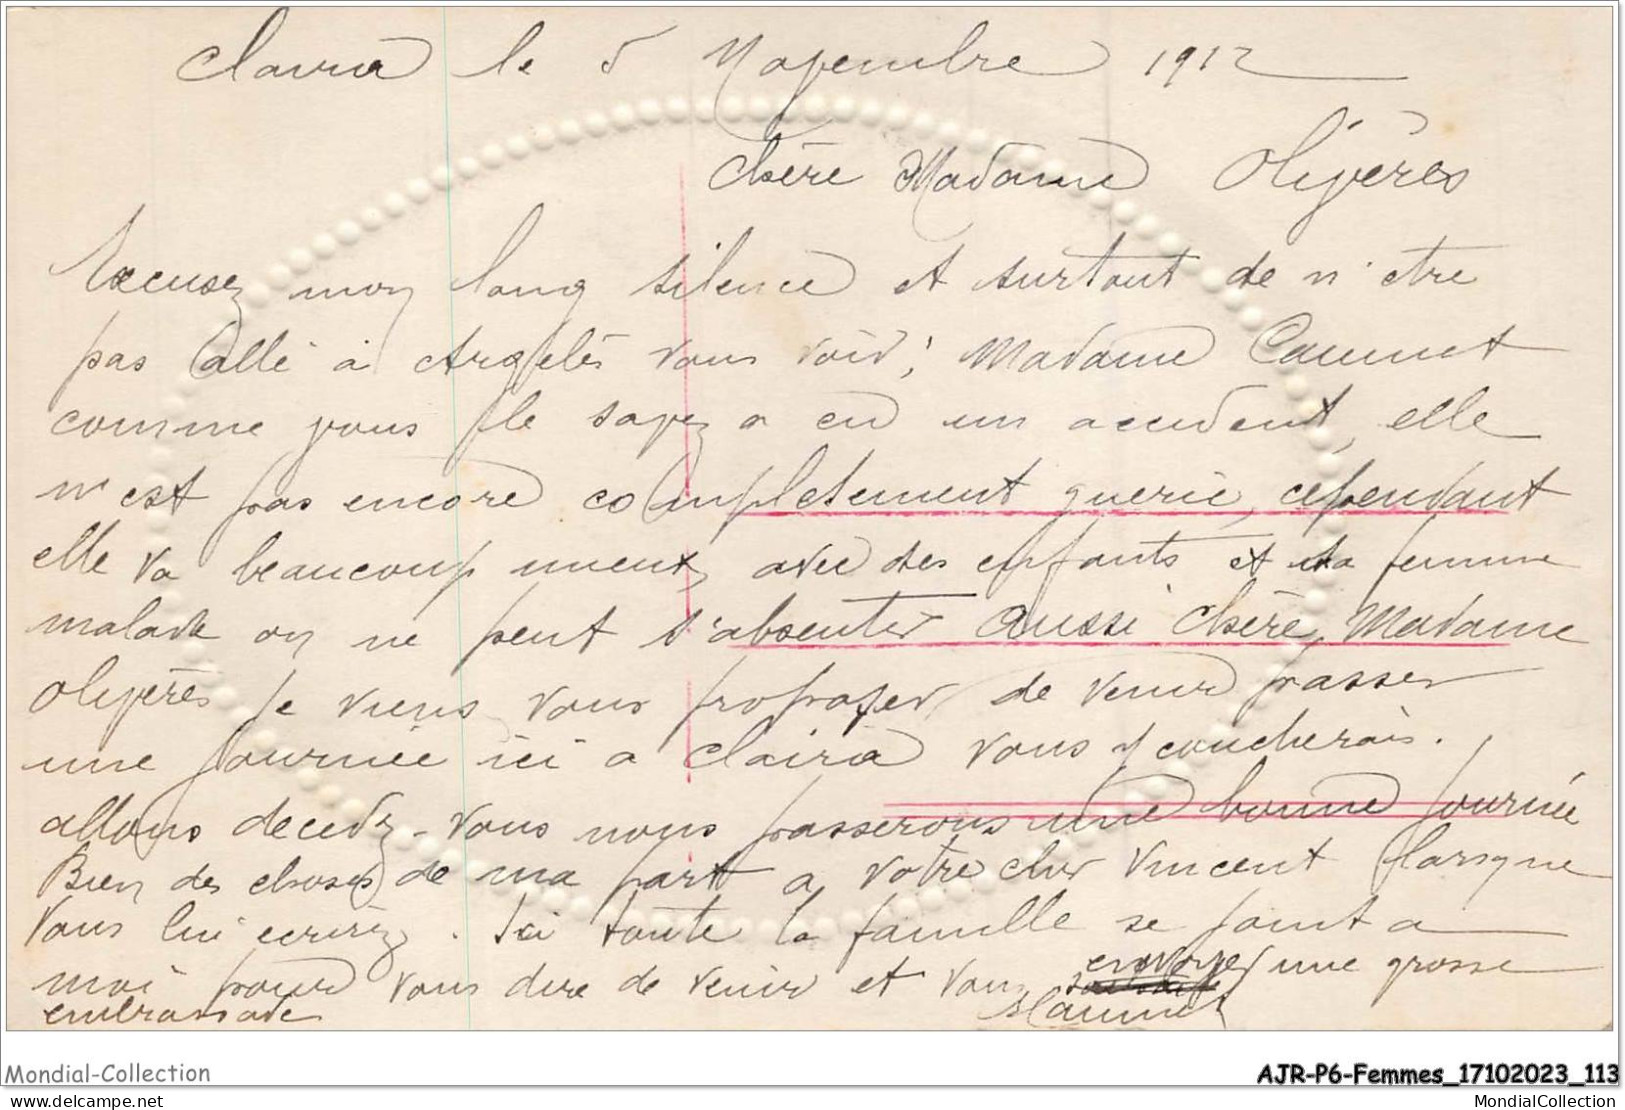 Claira le 5 Novembre 1912
Chère Madame Oligères
Excusez mon long silence et surtout de n'etre
pas allé à Argelès vous voir; Madame Caumet
comme vous le savez a eu un accident, elle
n'est pas encore completement guerie, cependant
elle va beaucoup mieux, avec des enfants et sa femme
malade on ne peut s'absenter aussi chère Madame
Oligères je viens vous proposer de venir passer
une journée ici a Claira vous y coucherais.
allons decidez-vous nous passerons une bonne journée
Bien des choses de ma part a votre cher Vincent lorsque
vous lui ecrirez. Ici toute la famille se joint a
moi pour vous dire de venir et vous envoyer une grosse
embrassade
Caumet
Mondial-Collection
AJR-P6-Femmes_17102023_113
delcampe.net
MondialCollection